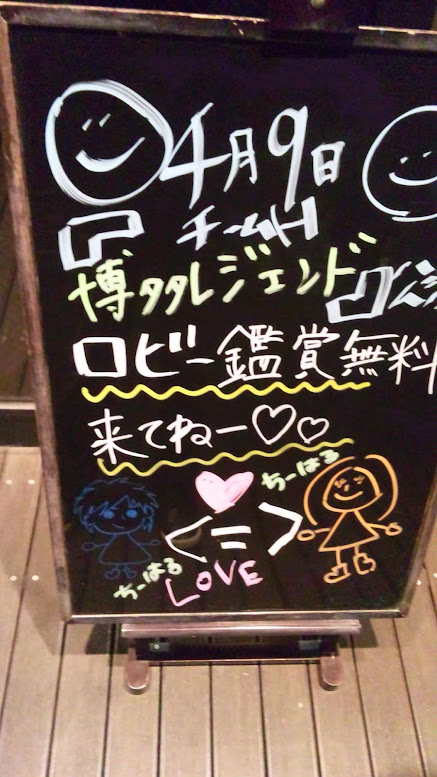 4月9日
チームH
「博多レジェンド」公演
ロビー鑑賞無料
来てねー♡♡
ちーはる
<=>
ちーはる
LOVE